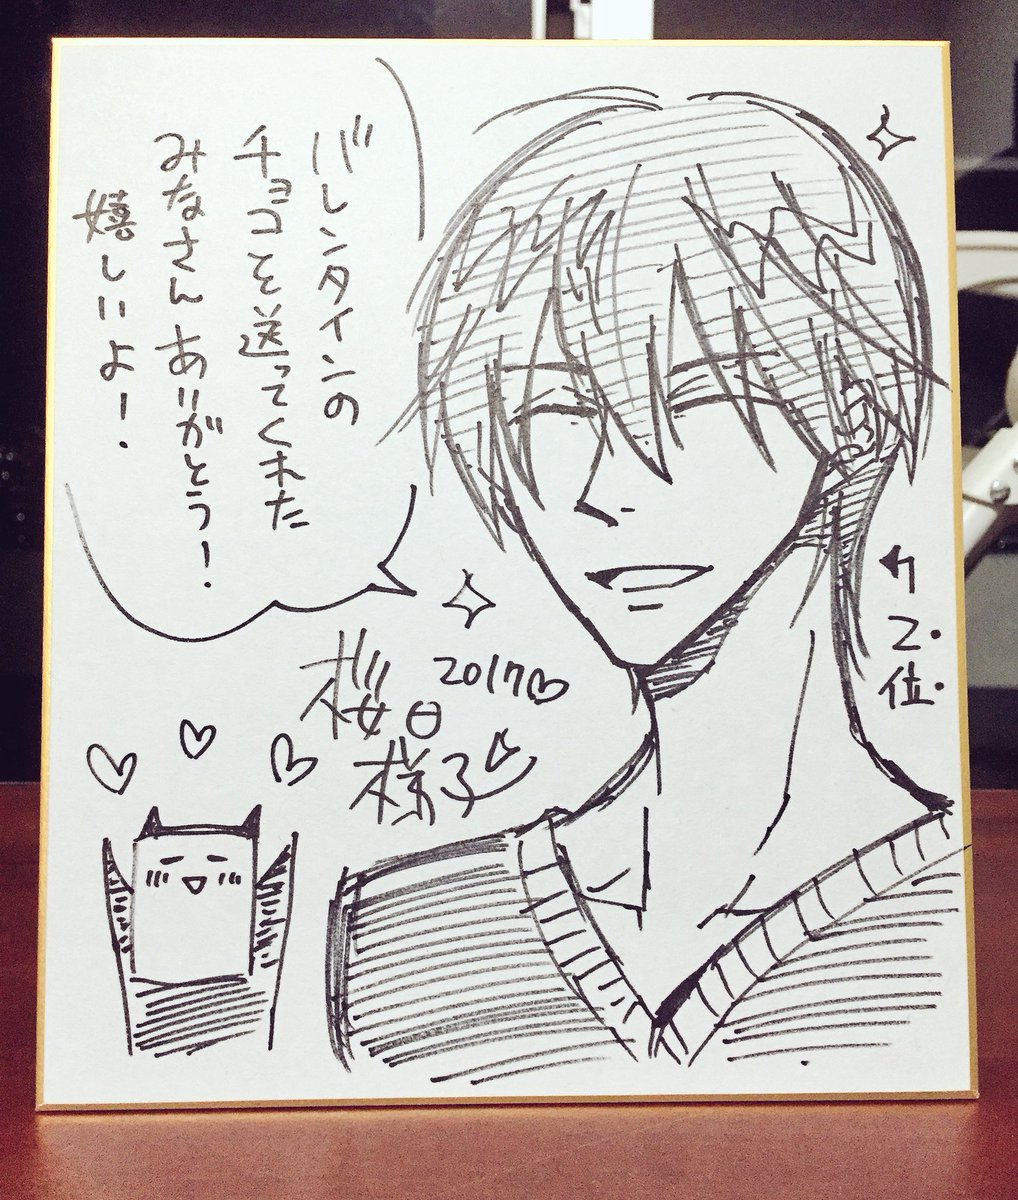 バレンタインの
チョコを送ってくれた
みなさんありがとう！
嬉しいよ！
2位
2017
桜日
様子